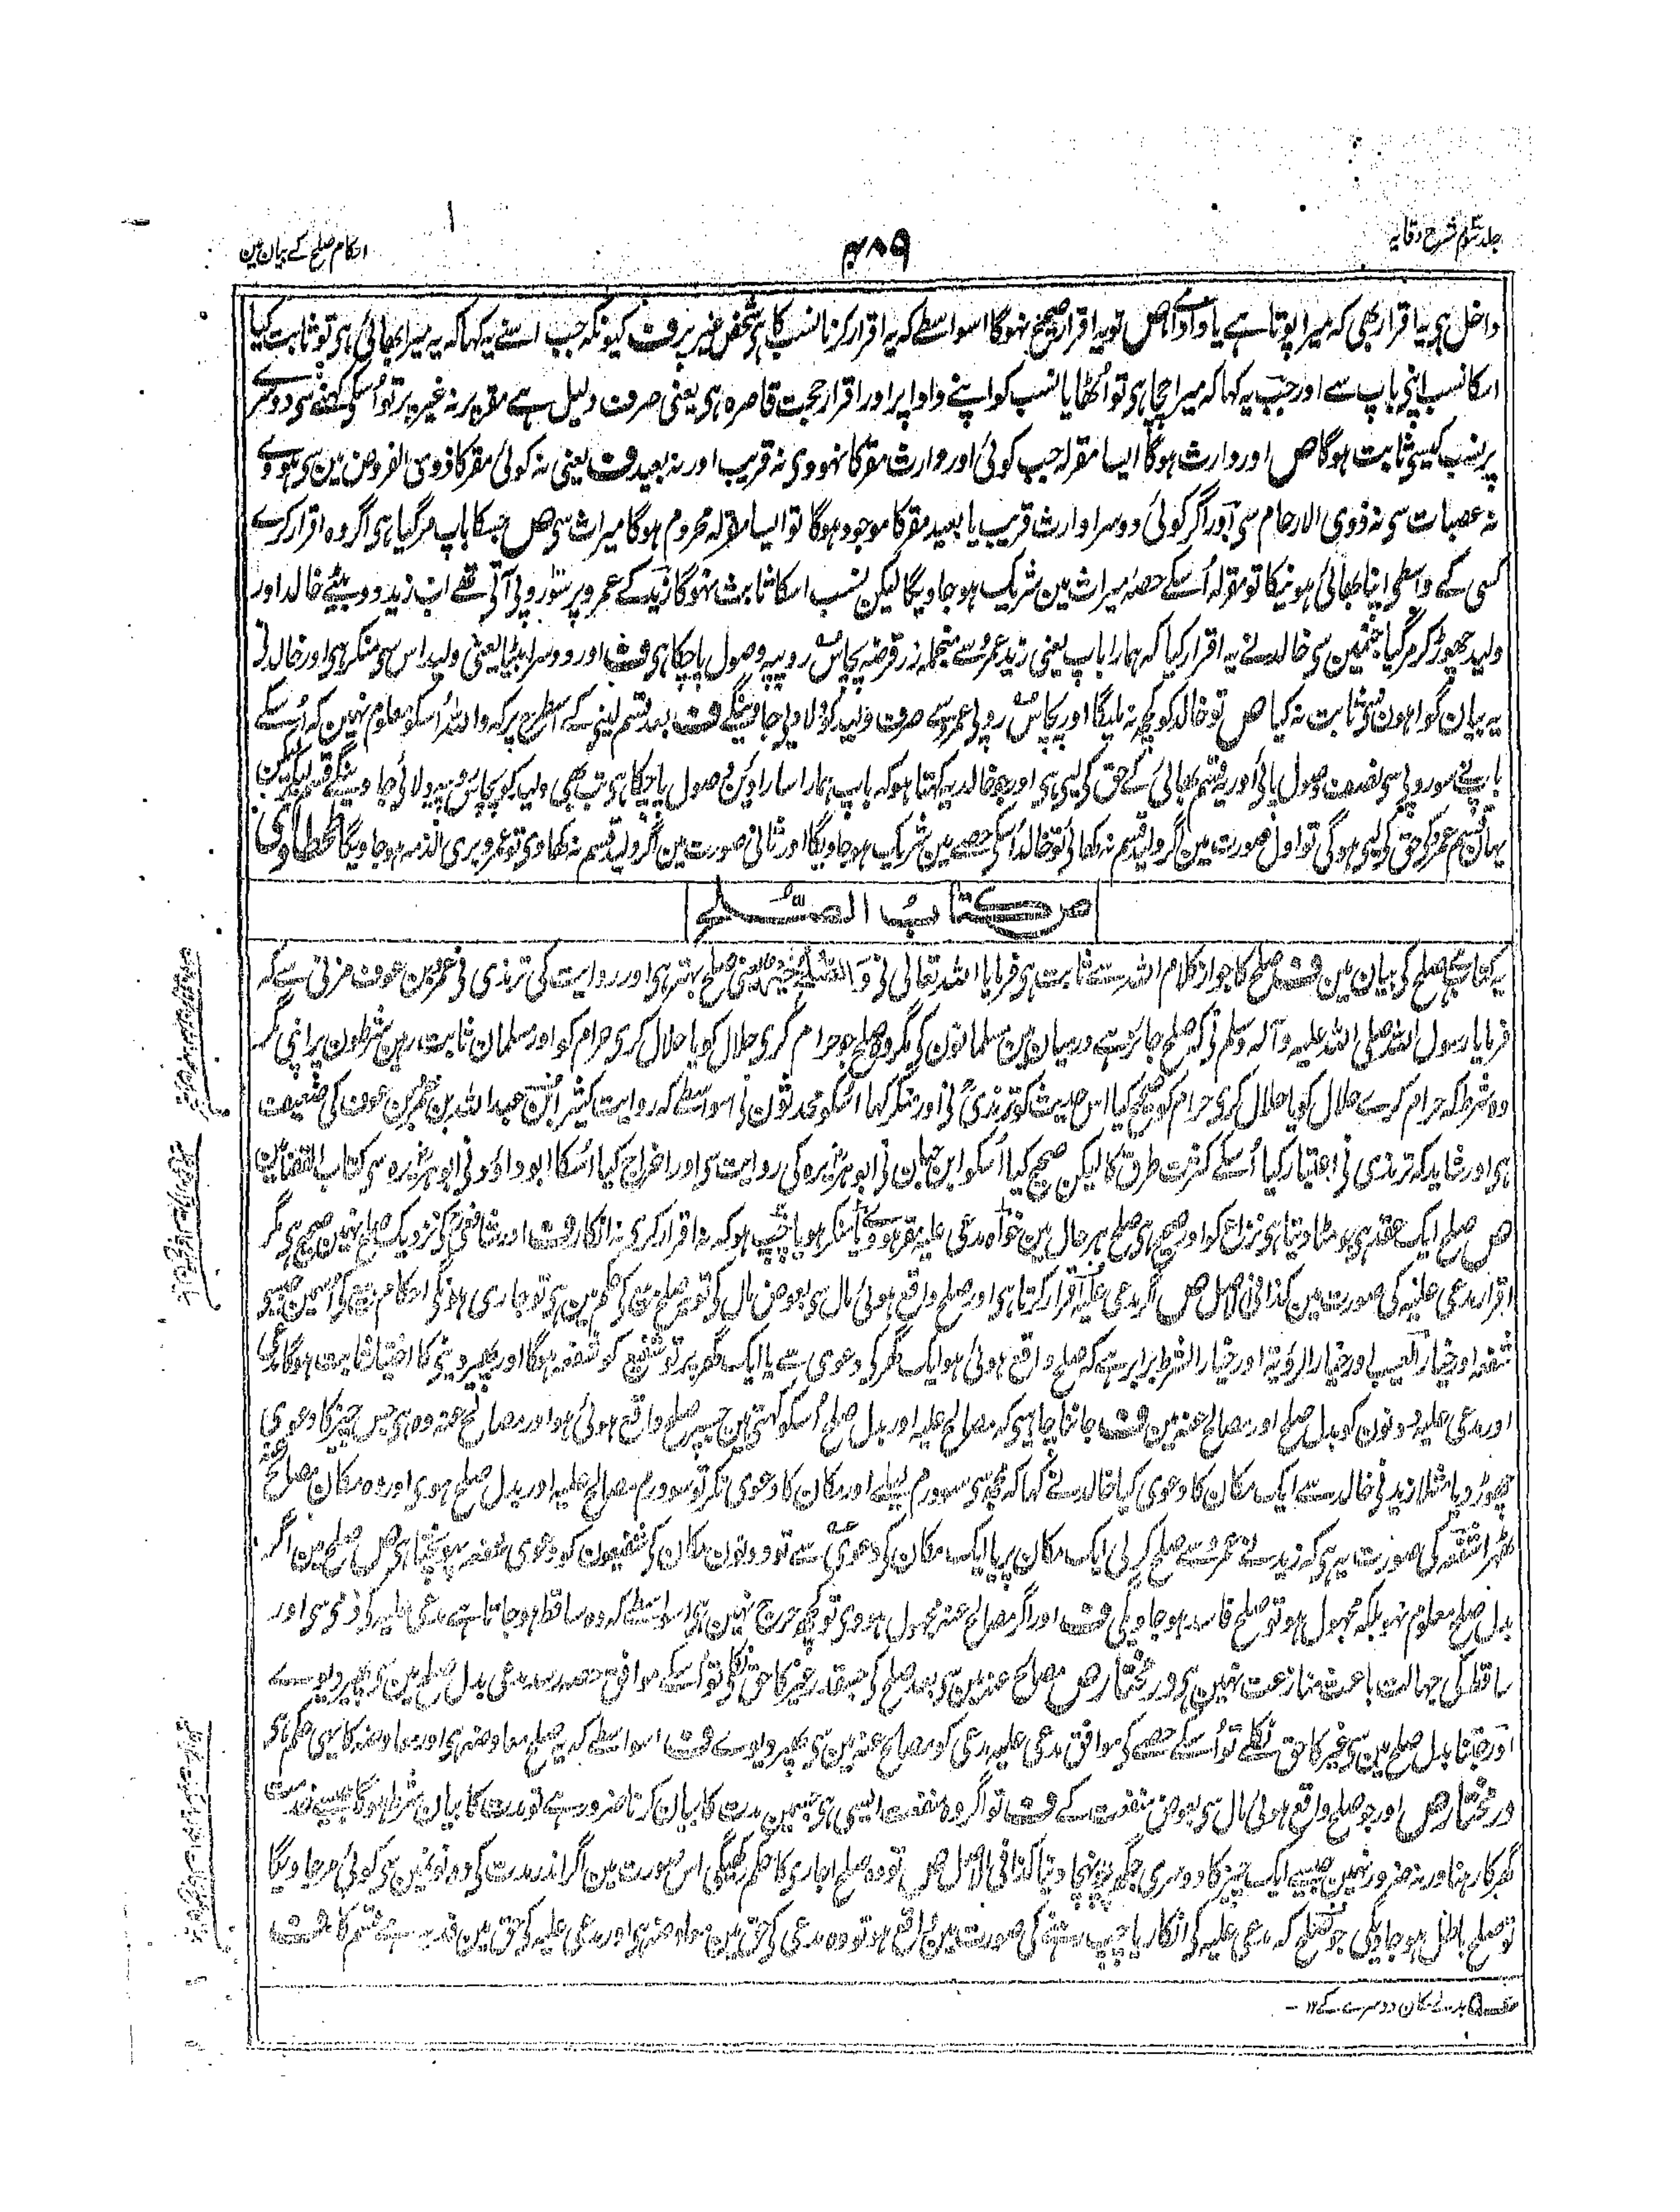 جلد سوم شرح وقایہ
۴۸۹
احکام صلح کے بیان مین
داخل ہی یہ اقرار بھی کہ میرا پوتا ہے یا دادا ص تو یہ اقرار صحیح نہوگا اسواسطے کہ یہ اقرار کرنا نسب کا ہی شخص غیر پر ف کیونکہ جب اسنے یہ کہا کہ یہ میرا بھائی ہی تو ثابت کیا
اسکا نسب اپنی باپ سے اور جب یہ کہا کہ میرا چچا ہی تو اُٹھایا نسب کو اپنے دادا پر اور اقرار حجت قاصرہ ہی یعنی صرف دلیل ہے مقر پر نہ غیر پر تو اُسکی کہنے سی دوسرے
پر نسب کیسی ثابت ہوگا ص اور وارث ہوگا ایسا مقرلہ جب کوئی اور وارث مقر کا نہووی نہ قریب اور نہ بعید ف یعنی نہ کوئی مقر کا ذوی الفروض مین سی ہووے
نہ عصبات سی نہ ذوی الارحام سی اور اگر کوئی دوسرا وارث قریب یا بعید مقر کا موجود ہوگا تو ایسا مقرلہ محروم ہوگا میراث سی ص جسکا باپ مر گیا ہی اگر وہ اقرار کرے
کسی کے واسطی اپنا بھائی ہونیکا تو مقرلہ اُسکے حصہ میراث مین شریک ہو جاویگا لیکن نسب اسکا ثابت نہوگا زید کے عمرو پر سو روپی آتی تھے اب زید دو بیٹے خالد اور
ولید چھوڑ کر مر گیا جنمین سی خالد نے یہ اقرار کیا کہ ہمارا باپ یعنی زید عمرو سے منجملہ زر قرضہ پچاس روپیہ وصول پا چکا ہی ف اور دوسرا بیٹا یعنی ولید اس سی منکر ہی اور خالد نی
یہ بیان گواہون سی ثابت نہ کیا ص تو خالد کو کچھ نہ ملیگا اور پچاس روپی عمرو سے صرف ولید کو دلا دیی جاوینگے ف بعد قسم لینی کے اسطرح پر کہ واللہ اُسکو معلوم نہین کہ اُسکے
باپ نے سو روپی سی نصف وصول پائی اور یہ قسم بھائی کے حق کی لیی ہی اور جو خالد یہ کہتا ہو کہ باپ ہمارا سارا دین وصول پا چکا ہی تب بھی ولید کو پچاس روپیہ دلائی جاوینگے قسم لیکر لیکن
یہان قسم عمرو کی حق کی لیی ہوگی تو اول صورت مین اگر ولید قسم نہ کھائی تو خالد اُسکی حصے مین شریک ہو جاویگا اور ثانی صورت مین اگر ولید قسم نہ کھاوی تو عمرو بری الذمہ ہو جاویگا طحطاوی
ص کتاب الصلح
یہ کتاب ہے صلح کی بیان مین ف صلح کا جواز کلام اللہ سے ثابت ہی فرمایا اللہ تعالی نی وَالصُّلْحُ خَیْرٌ یعنی صلح بہتر ہی اور روایت کی ترمذی نی عمرو بن عوف مزنی سے کہ
فرمایا رسول اللہ صلی اللہ علیہ وآلہ وسلم نی کہ صلح جائز ہے درمیان مین مسلمانون کی مگر وہ صلح جو حرام کری حلال کو یا حلال کری حرام کو اور مسلمان ثابت رہین شرطون پر اپنی مگر
وہ شرط کہ حرام کرے حلال کو یا حلال کری حرام کو صحیح کیا اس حدیث کو ترمذی نی اور منکر کہا اُسکو محدثون نی اسواسطے کہ روایت کثیر ابن عبداللہ بن عمرو بن عوف کی ضعیف
ہی اور شاید کہ ترمذی نی اعتبار کیا اُسکے کثرت طرق کا لیکن صحیح کیا اُسکو ابن حبان نی ابو ہریرہ کی روایت سی اور اخراج کیا اُسکا ابو داؤد نی ابو ہریرہ سی کتاب القضا مین
ص صلح ایک عقد ہی جو مٹا دیتا ہی نزاع کو اور صحیح ہی صلح ہر حال مین خواہ مدعی علیہ مقر ہووے یا منکر ہو یا چپ ہو کہ نہ اقرار کری نہ انکار ف اور شافعی کی نزدیک صلح نہین صحیح ہی مگر
اقرار مدعی علیہ کی صورت مین کذا فی الاصل ص اگر مدعی علیہ اقرار کرتا ہی اور صلح واقع ہوئی مال سی بعوض مال کی تو یہ صلح بیع کی حکم مین ہی تو جاری ہونگی احکام بیع کی اسمین جیسے
شفعہ اور خیار العیب اور خیار الرؤیۃ اور خیار الشرط برابر ہے کہ صلح واقع ہوئی ہو ایک گھر کی دعوی سے یا ایک گھر پر تو شفیع کو شفعہ ہوگا اور پھیر دینی کا اختیار ثابت ہوگا مدعی
اور مدعی علیہ دونون کو بدل صلح اور مصالح عنہ مین ف جاننا چاہیی کہ مصالح علیہ اور بدل صلح اُسکو کہتی ہین جسپر صلح واقع ہوئی ہو اور مصالح عنہ وہ ہی جس چیز کا دعوی
چھوڑ دیا مثلا زید نی خالد سے ایک مکان کا دعوی کیا خالد نے کہا کہ مجھسی سو درم لیلے اور مکان کا دعوی نکر تو سو درم مصالح علیہ اور بدل صلح ہوی اور وہ مکان مصالح عنہ
ٹھہرا شفعہ کی صورت یہ ہی کہ زید نے عمرو سے صلح کر لی ایک مکان پر یا ایک مکان کی دعوی سے تو دونون مکان کی شفیعون کو دعوی شفعہ پہونچتا ہی ص صلح مین اگر
بدل صلح معلوم نہو بلکہ مجہول ہو تو صلح فاسد ہو جاویگی ف اور اگر مصالح عنہ مجہول ہووی تو کچھ حرج نہین ہی اسواسطے کہ وہ ساقط ہو جاتا ہے مدعی علیہ کی ذمی سی اور
ساقط کی جہالت باعث منازعت نہین ہی درمختار ص مصالح عنہ مین سی بعد صلح کی جسقدر غیر کا حق نکلی تو اُسکے موافق حصہ رسد مدعی بدل صلح مین سی پھیر دیوے
اور جتنا بدل صلح مین سی غیر کا حق نکلے تو اُسکے حصے کی موافق مدعی علیہ مدعی کو مصالح عنہ مین سی پھیر دیوے ف اسواسطے کہ یہ صلح معاوضہ ہی اور معاوضہ کا یہی حکم ہی
درمختار ص اور جو صلح واقع ہوئی مال سی بعوض منفعت کے ف تو اگر وہ منفعت ایسی ہی جسمین مدت کا بیان کرنا ضرور ہے تو مدت کا بیان شرط ہوگا جیسے خدمت
گھر کا رہنا ورنہ ضرور نہین جیسے ایک چیز کا دوسری جگہ پہنچا دینا کذا فی الاصل ص تو وہ صلح اجاری کا حکم رکھیگی اس صورت مین اگر اندر مدت کی دونونمین سی کوئی مر جاویگا
تو صلح باطل ہو جاویگی جو صلح کہ مدعی علیہ کی انکار یا چپ رہنے کی صورت مین واقع ہو تو وہ مدعی کی حق مین معاوضہ ہی اور مدعی علیہ کی حق مین فدیہ ہے قسم کا ف
بدلے مکان دوسرے کے ۱۲